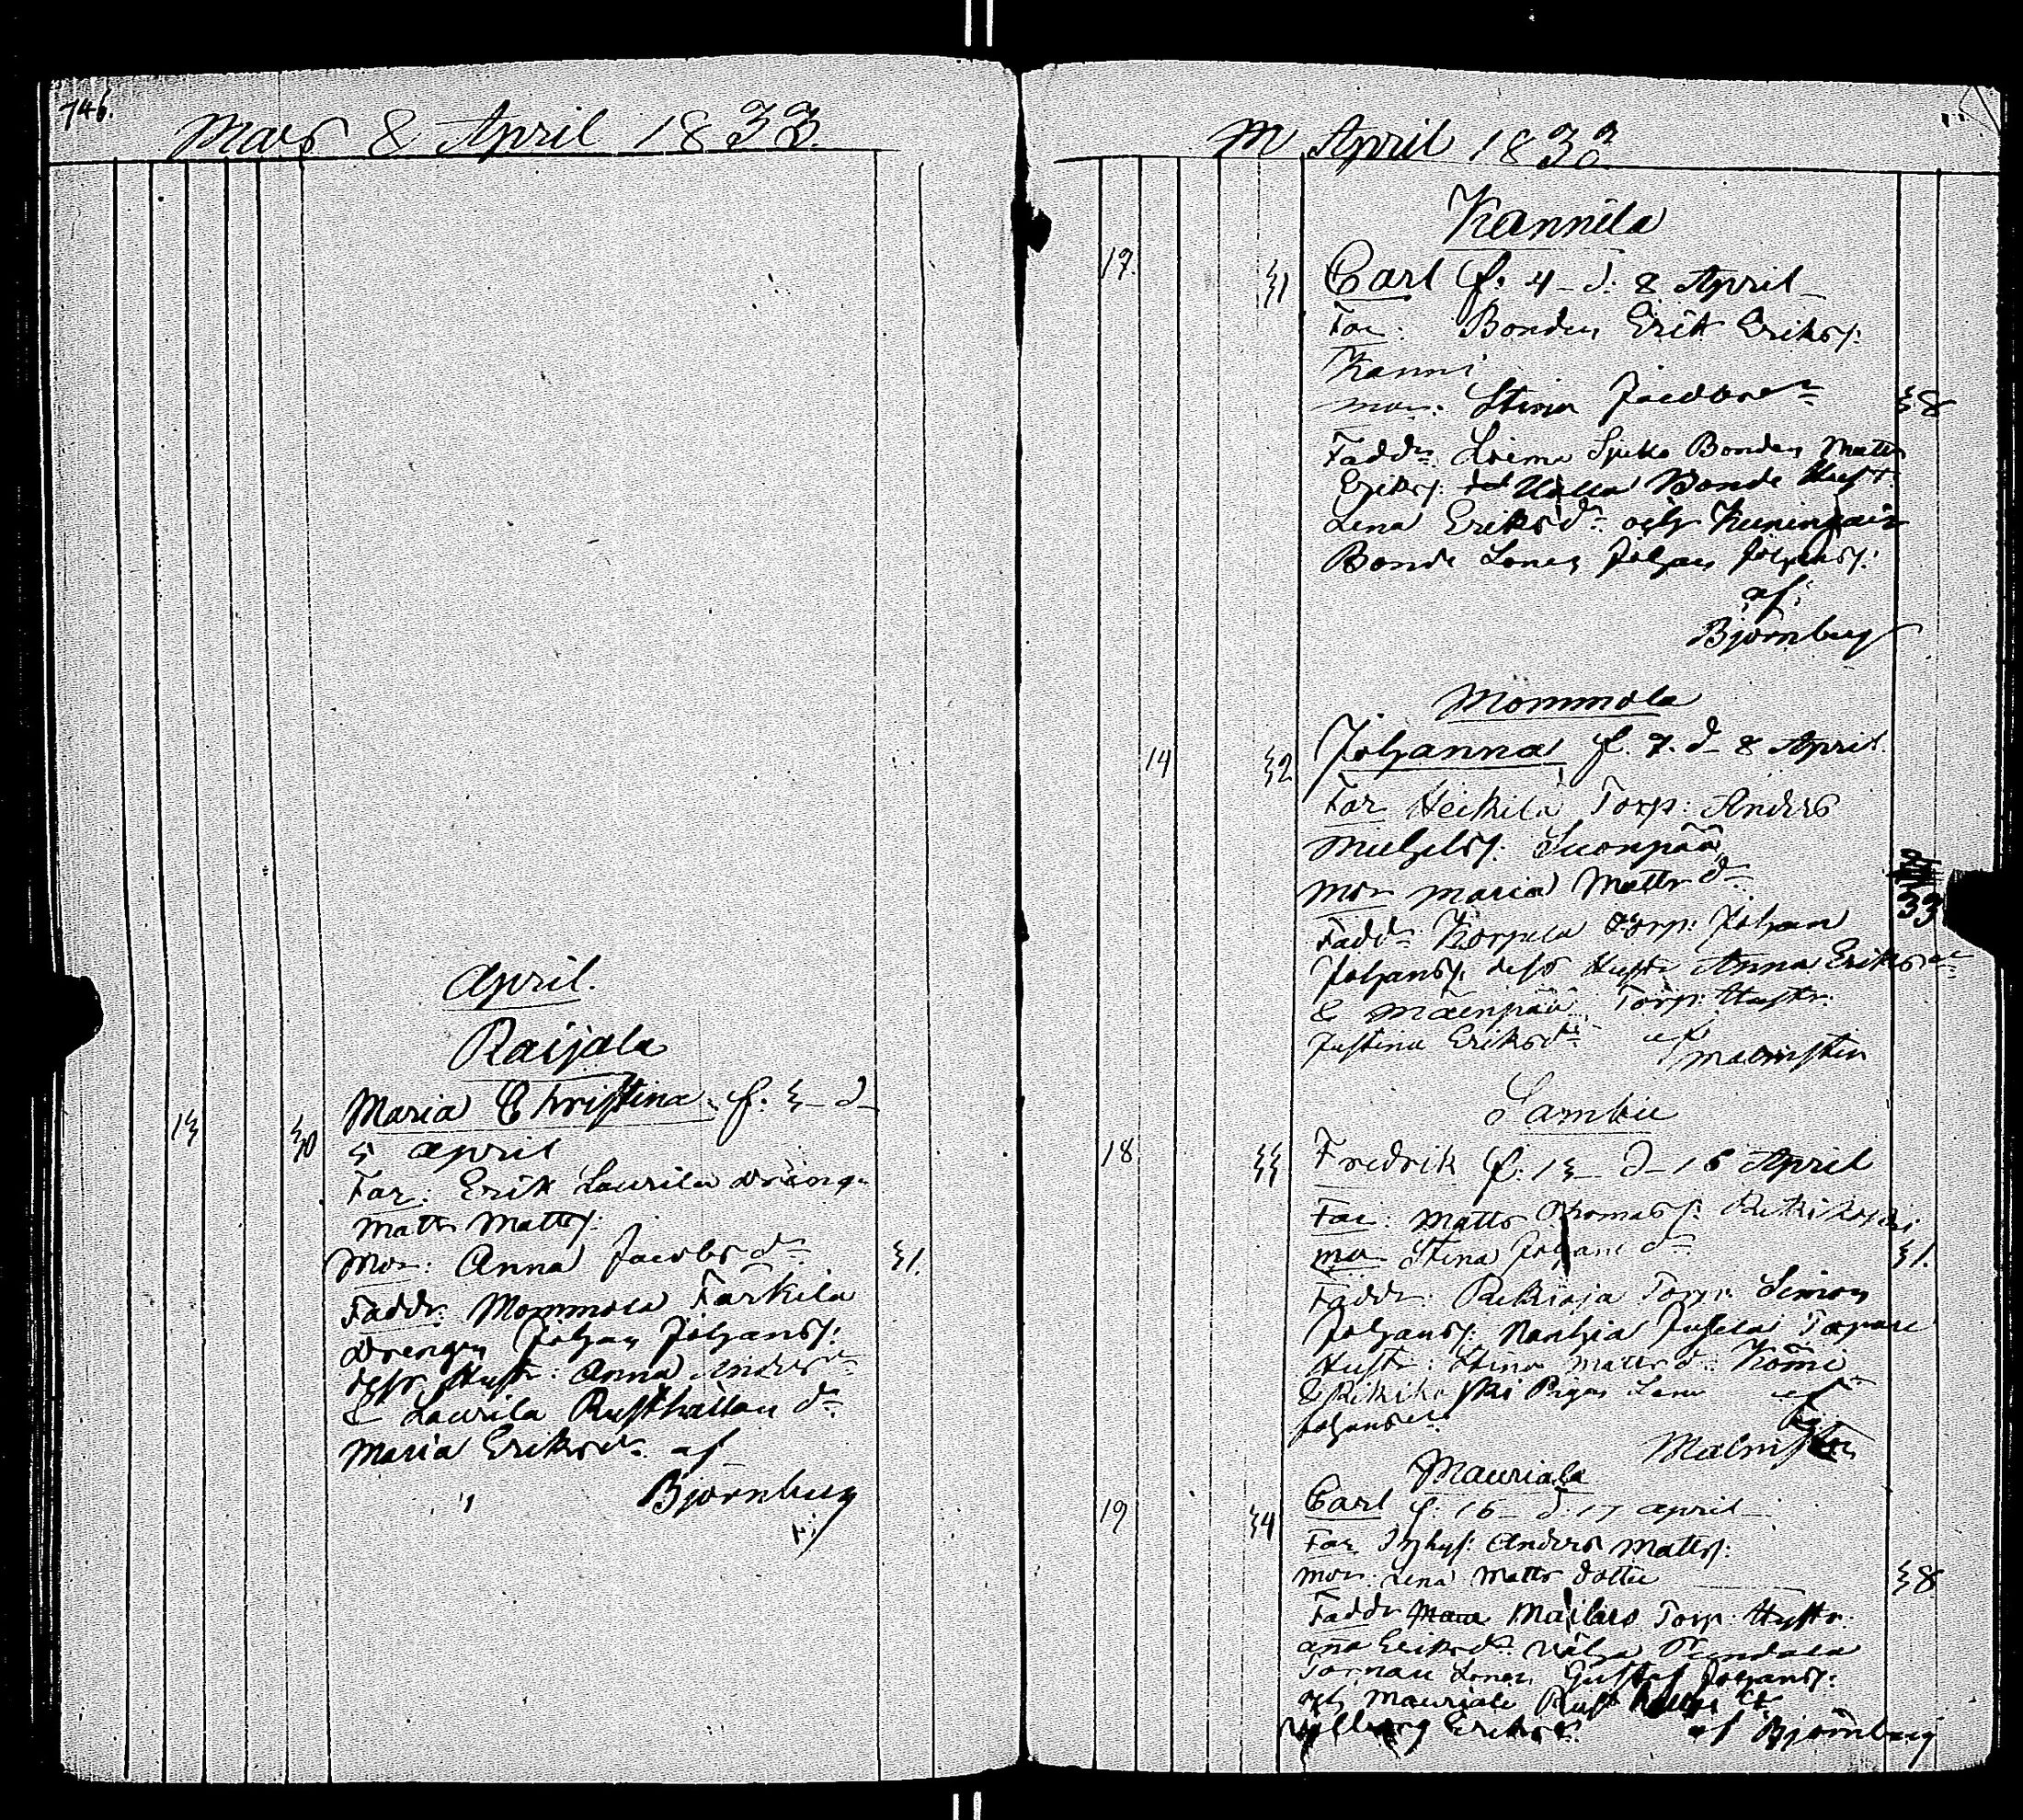 746.
Mars & April 1833.
April.
Raijala
13 30 Maria Christina f. 3 – d
5 April
Far: Erik Laurila Dräng
Matts Matts:
Mor: Anna Jacobs dr 31.
Faddr: Mommola Farkila
Drengen Johan Johanss:
dess Hustr: Anna Anders dr
& Laurila Rusthållau dr
Maria Eriksdr af
Björnberg
M April 1833
Kannila
17. 31 Carl f. 4 – d. 8 April
Far: Bonden Erik Erikss:
Kanni
Mor: Stina Jacobs dr 38
Faddr: Loima Bonden Matts
Erikss: Bonde Hustr:
Lena Eriksdr och
Bonde Sonen Johan Johanss:
af
Björnberg
Mommola
14 32 Johanna f. 7. d – 8 April
Far Heikilä Torp: Anders
Michelss: Suonpää
Mor Maria Matts dr 33
Faddr Korpela Torp: Johan
Johanss: dess Hustr Anna Eriks dr
& Mäenpää Torp: Hustr:
Justina Eriksdr af
Malmsten
Sambu
18 33 Fredrik f: 13 – d – 16 April
Far: Matts Thomass:
Mor Stina Johans dr 31.
Faddr: Torp: Simon
Johanss: Jussila
Hustr: Stina Matts d:
& Pigan Lena af
Johans dr
Malmsten
Mauriala
19 34 Carl f: 16 – d: 17 April
Far Inhys: Anders Matts:
Mor: Lena Matts dotter 38
Faddr Torp: Hustr:
Aña Eriksdr
Sonen Gustaf Johanss:
och Mauriala Rusth
Eriksd: af Björnberg